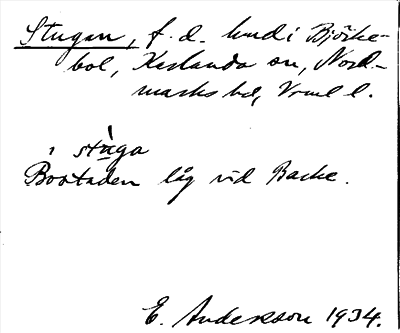 Stugan, f.d. hmd i Björke-
bol, Karlanda sn, Nord-
marks hd, Vrml l.
i stùga
Bostaden låg vid Backe.
E. Andersson 1934.